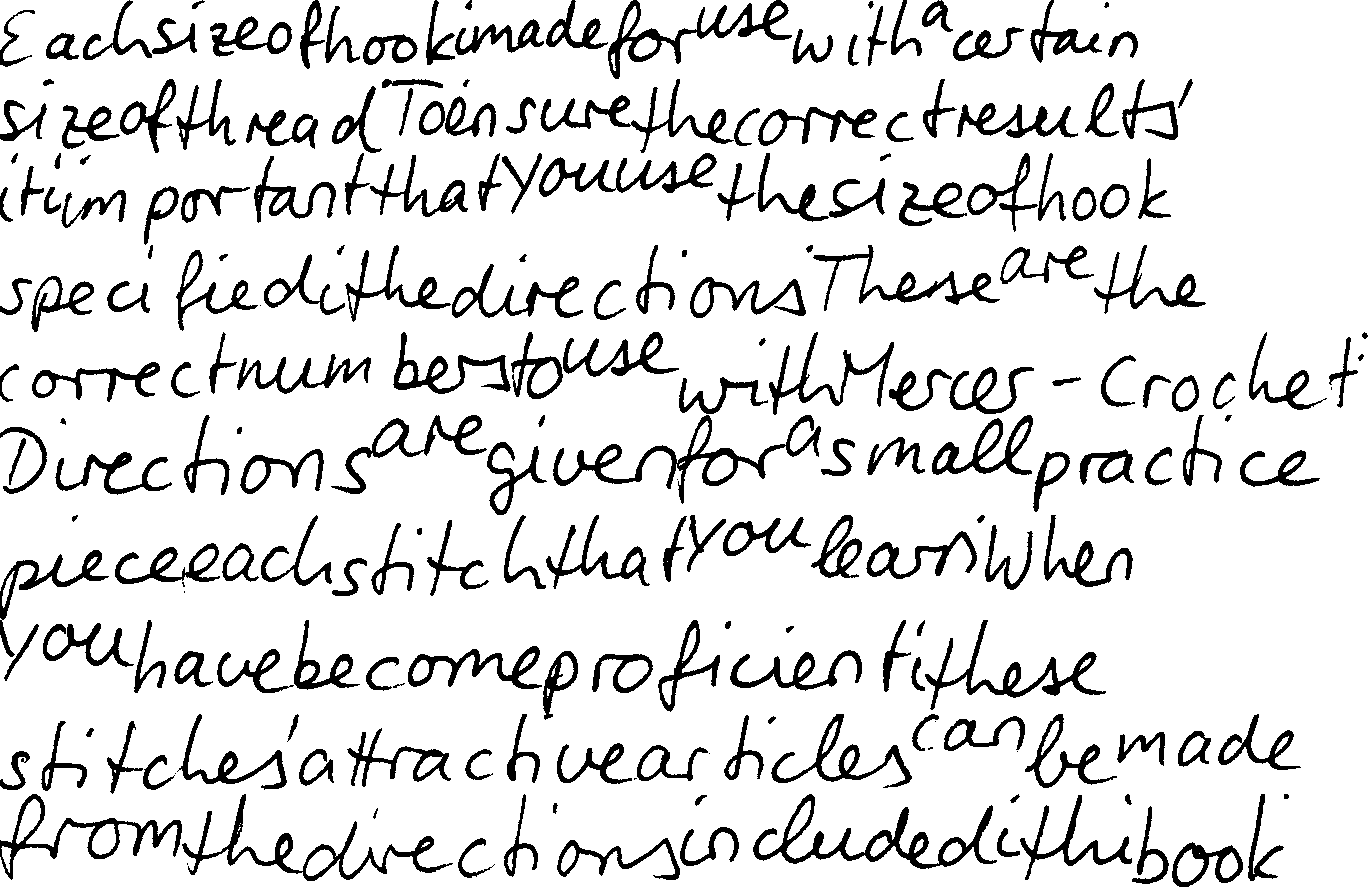 Each size of hook i made for use with a certain
size of thread To ensure the correct results'
it i important that you use the size of hook
specified i the directions These are the
correct numbers to use with Mercer - Crochet
Directions are given for a small practice
piece each stitch that you learn When
you have become proficient i these
stitches' attractive articles can be made
from the directions included i thi book